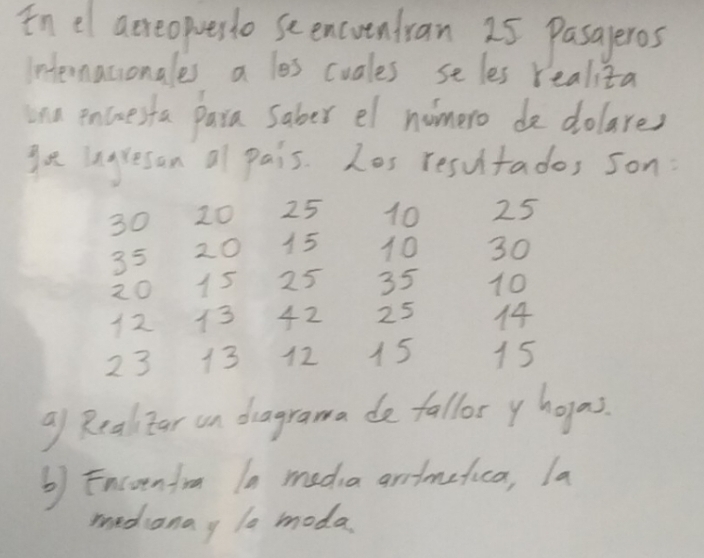 En el aereopuerto se encuentran 25 Pasajeros
Internacionales a los cuales se les realiza
una encuesta para saber el número de dolares
que ingresan al país. Los resultados son:
30 20 25 10 25
35 20 15 10 30
20 15 25 35 10
12 13 42 25 14
23 13 12 15 15
a) Realizar un diagrama de tallos y hojas.
b) Encuentra la media aritmetica, la
mediana y la moda.